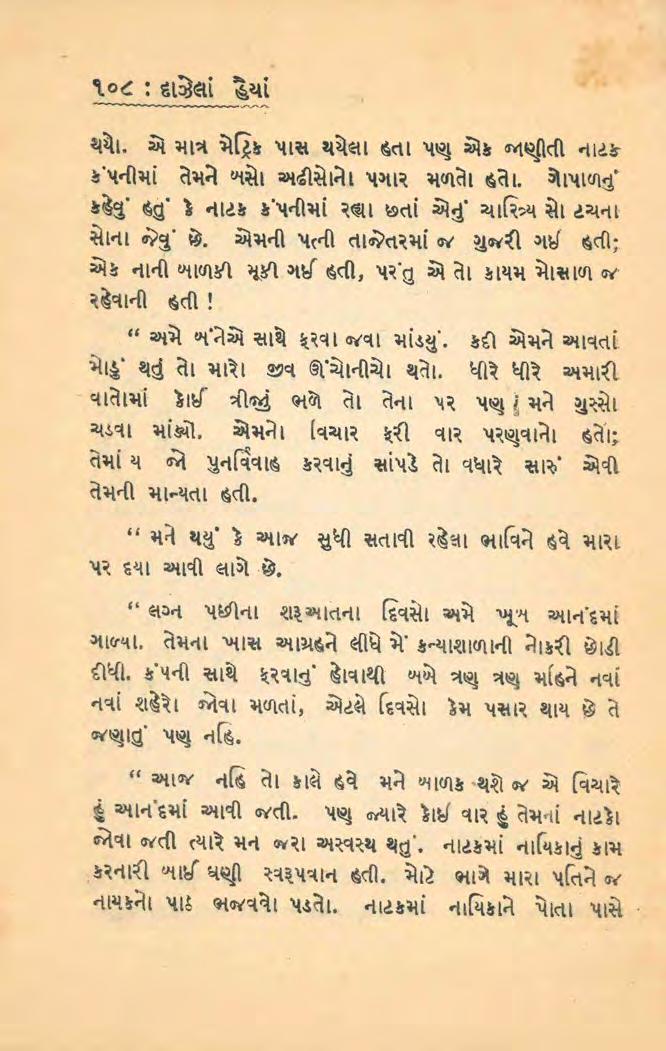 ૧૦૮ : દાઝેલાં હૈયાં
થયો. એ માત્ર મેટ્રિક પાસ થયેલા હતા પણ એક જાણીતી નાટક
કંપનીમાં તેમને બસો અઢીસોનો પગાર મળતો હતો. ગોપાળનું
કહેવું હતું કે નાટક કંપનીમાં રહ્યા છતાં એનું ચારિત્ર્ય સો ટચના
સોના જેવું છે. એમની પત્ની તાજેતરમાં જ ગુજરી ગઈ હતી;
એક નાની બાળકી મૂકી ગઈ હતી, પરંતુ એ તો કાયમ મોસાળ જ
રહેવાની હતી !
“ અમે બંનેએ સાથે ફરવા જવા માંડયું. કદી એમને આવતાં
મોડું થતું તો મારો જીવ ઊંચોનીચો થતો. ધીરે ધીરે અમારી
વાતોમાં કોઈ ત્રીજું ભળે તો તેના પર પણ મને ગુસ્સો
ચડવા માંડ્યો. એમનો વિચાર ફરી વાર પરણવાનો હતો;
તેમાં ય જો પુનર્વિવાહ કરવાનું સાંપડે તો વધારે સારું એવી
તેમની માન્યતા હતી.
“ મને થયું કે આજ સુધી સતાવી રહેલા ભાવિને હવે મારા
પર દયા આવી લાગે છે.
“ લગ્ન પછીના શરૂઆતના દિવસો અમે ખૂબ આનંદમાં
ગાળ્યા. તેમના ખાસ આગ્રહને લીધે મેં કન્યાશાળાની નોકરી છોડી
દીધી. કંપની સાથે ફરવાનું હોવાથી બબે ત્રણ ત્રણ મહિને નવાં
નવાં શહેરો જોવા મળતાં, એટલે દિવસો કેમ પસાર થાય છે તે
જણાતું પણ નહિ.
“ આજ નહિ તો કાલે હવે મને બાળક થશે જ એ વિચારે
હું આનંદમાં આવી જતી. પણ જ્યારે કોઈ વાર હું તેમનાં નાટકો
જોવા જતી ત્યારે મન જરા અસ્વસ્થ થતું. નાટકમાં નાયિકાનું કામ
કરનારી બાઈ ઘણી સ્વરૂપવાન હતી. મોટે ભાગે મારા પતિને જ
નાયકનો પાઠ ભજવવો પડતો. નાટકમાં નાયિકાને પોતા પાસે